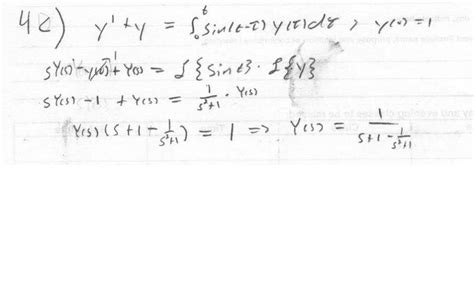 4c) y' + y = ∫₀ᵗ sin(t-τ) y(τ) dτ , y(0) = 1
sY(s) - y(0) + Y(s) = ℒ{sin t} · ℒ{y}
sY(s) - 1 + Y(s) = 1/(s²+1) · Y(s)
Y(s) (s + 1 - 1/(s²+1)) = 1 => Y(s) = 1/(s+1 - 1/(s²+1))